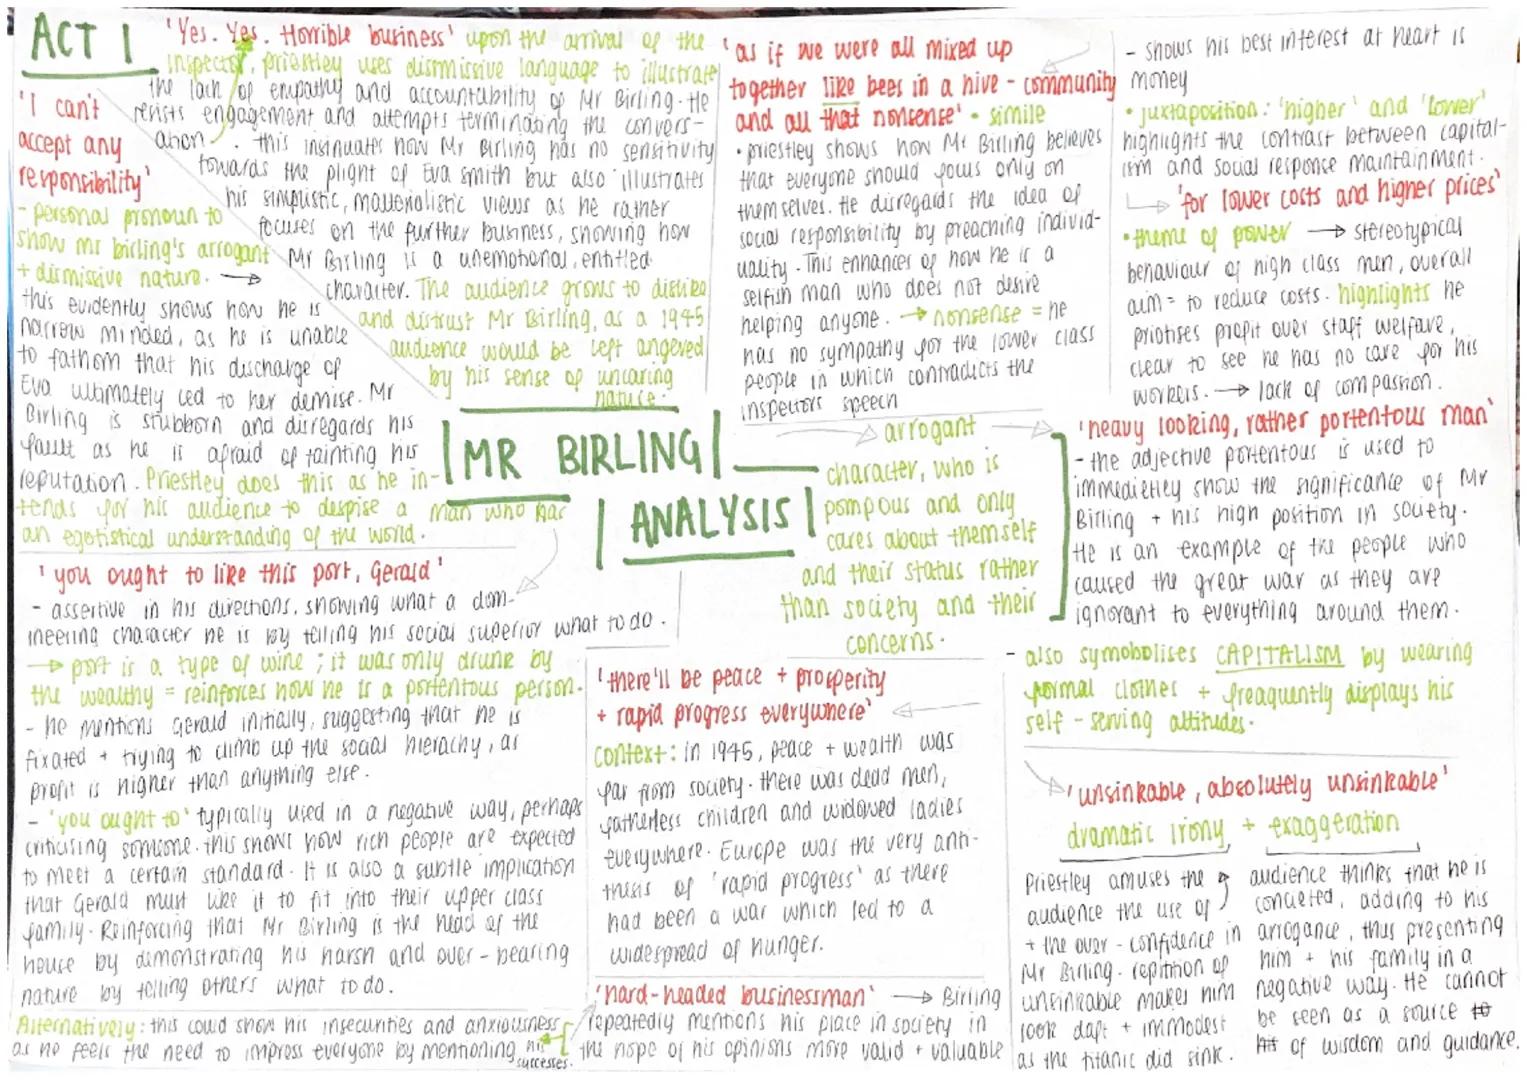 ACT 1
'Yes. Yes. Horrible business' upon the arrival of the
inspector, priestley uses dismissive language to illustrate
the lack of empathy and accountability of Mr Birling. He
resists engagement and attempts terminating the convers-
ation. this insinuates how Mr Birling has no sensitivity
towards the plight of Eva Smith but also illustrates
his simplistic, materialistic views as he rather
focuses on the further business, showing how
Mr Birling is a unemotional, entitled
character. The audience grows to dislike
and distrust Mr Birling, as a 1945
audience would be left angered
by his sense of uncaring
nature.
'I can't
accept any
responsibility'
- personal pronoun to
show mr birling's arrogant
+ dismissive nature. →
this evidently shows how he is
narrow minded, as he is unable
to fathom that his discharge of
Eva ultimately led to her demise. Mr
Birling is stubborn and disregards his
fault as he is afraid of tainting his
reputation. Priestley does this as he in-
tends for his audience to despise a man who has
an egotistical understanding of the world.
'as if we were all mixed up
together like bees in a hive - community
and all that nonsense' • simile
• priestley shows how Mr Birling believes
that everyone should focus only on
themselves. He disregards the idea of
social responsibility by preaching individ-
uality. This enhances of how he is a
selfish man who does not desire
helping anyone. → nonsense = he
has no sympathy for the lower class
people in which contradicts the
inspectors speech
- shows his best interest at heart is
money
• juxtaposition: 'higher' and 'lower'
highlights the contrast between capital-
ism and social response maintainment.
→ 'for lower costs and higher prices'
• theme of power → stereotypical
behaviour of high class men, overall
aim = to reduce costs. highlights he
priotises profit over staff welfare,
clear to see he has no care for his
workers. → lack of compassion.
MR BIRLING
ANALYSIS
arrogant
character, who is
pompous and only
cares about themself
and their status rather
than society and their
concerns.
'heavy looking, rather portentous man'
- the adjective portentous is used to
immedietley show the significance of Mr
Birling + his high position in society.
He is an example of the people who
caused the great war as they are
ignorant to everything around them.
- also symobolises CAPITALISM by wearing
formal clothes + freaquently displays his
self-serving attitudes.
'you ought to like this port, Gerald'
- assertive in his directions, showing what a dom-
ineering character he is by telling his social superior what to do.
→ port is a type of wine; it was only drunk by
the wealthy = reinforces how he is a portentous person.
- he mentions Gerald initially, suggesting that he is
fixated + trying to climb up the social hierachy, as
profit is higher than anything else.
- 'you ought to' typically used in a negative way, perhaps
critcising someone. this shows how rich people are expected
to meet a certain standard. It is also a subtle implication
that Gerald must like it to fit into their upper class
family. Reinforcing that Mr Birling is the head of the
house by demonstrating his harsh and over-bearing
nature by telling others what to do.
Alternatively: this could show his insecurities and anxiousness
as he feels the need to impress everyone by mentioning his
successes.
'there'll be peace + prosperity
+ rapid progress everywhere'
context: in 1945, peace + wealth was
far from society. there was dead men,
fatherless children and widowed ladies
everywhere. Europe was the very anti-
thesis of 'rapid progress' as there
had been a war which led to a
widespread of hunger.
'hard-headed businessman' → Birling
repeatedly mentions his place in society in
the hope of his opinions more valid + valuable
'unsinkable, absolutely unsinkable'
dramatic irony + exaggeration
Priestley amuses the
audience the use of
+ the over-confidence in
Mr Birling. repitition of
unsinkable makes him
look daft + immodest
as the titanic did sink.
audience thinks that he is
conceited, adding to his
arrogance, thus presenting
him + his family in a
negative way. He cannot
be seen as a source to
of wisdom and guidance.